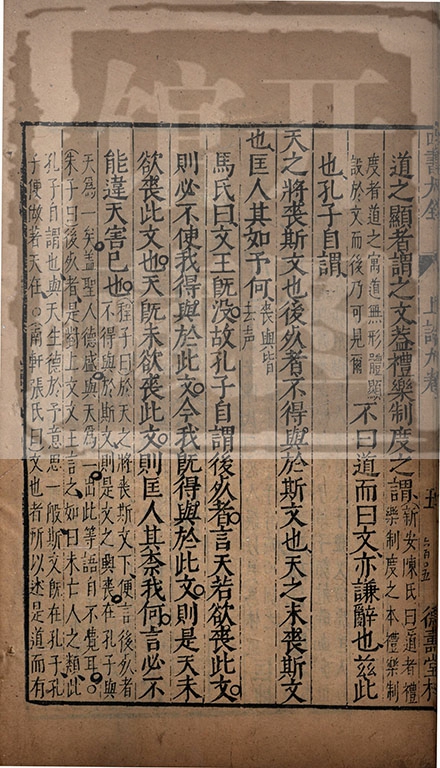 四書大全 上論九卷 五 德壽堂梓
道之顯者謂之文蓋禮樂制度之謂新安陳氏曰道者禮樂制度之本禮樂制
度者道之寓道無形體顯設於文而後乃可見爾不曰道而曰文亦謙辭也茲此
也孔子自謂
天之將喪斯文也後死者不得與於斯文也天之未喪斯文
也匡人其如予何喪與皆去声
馬氏曰文王既沒故孔子自謂後死者言天若欲喪此文
則必不使我得與於此文今我既得與於此文則是天未
欲喪此文也天既未欲喪此文則匡人其奈我何言必不
能違天害己也程子曰於天之將喪斯文下便言後死者不得與於斯文則是文之興喪在孔子與
天為一矣蓋聖人德盛與天為一出此等語自不覺耳
朱子曰後死者是對上文文王言之如曰未亡人之類此
孔子自謂也與天生德於予意思一般斯文既在孔子孔
子便做著天在南軒張氏曰文也者所以述是道而有